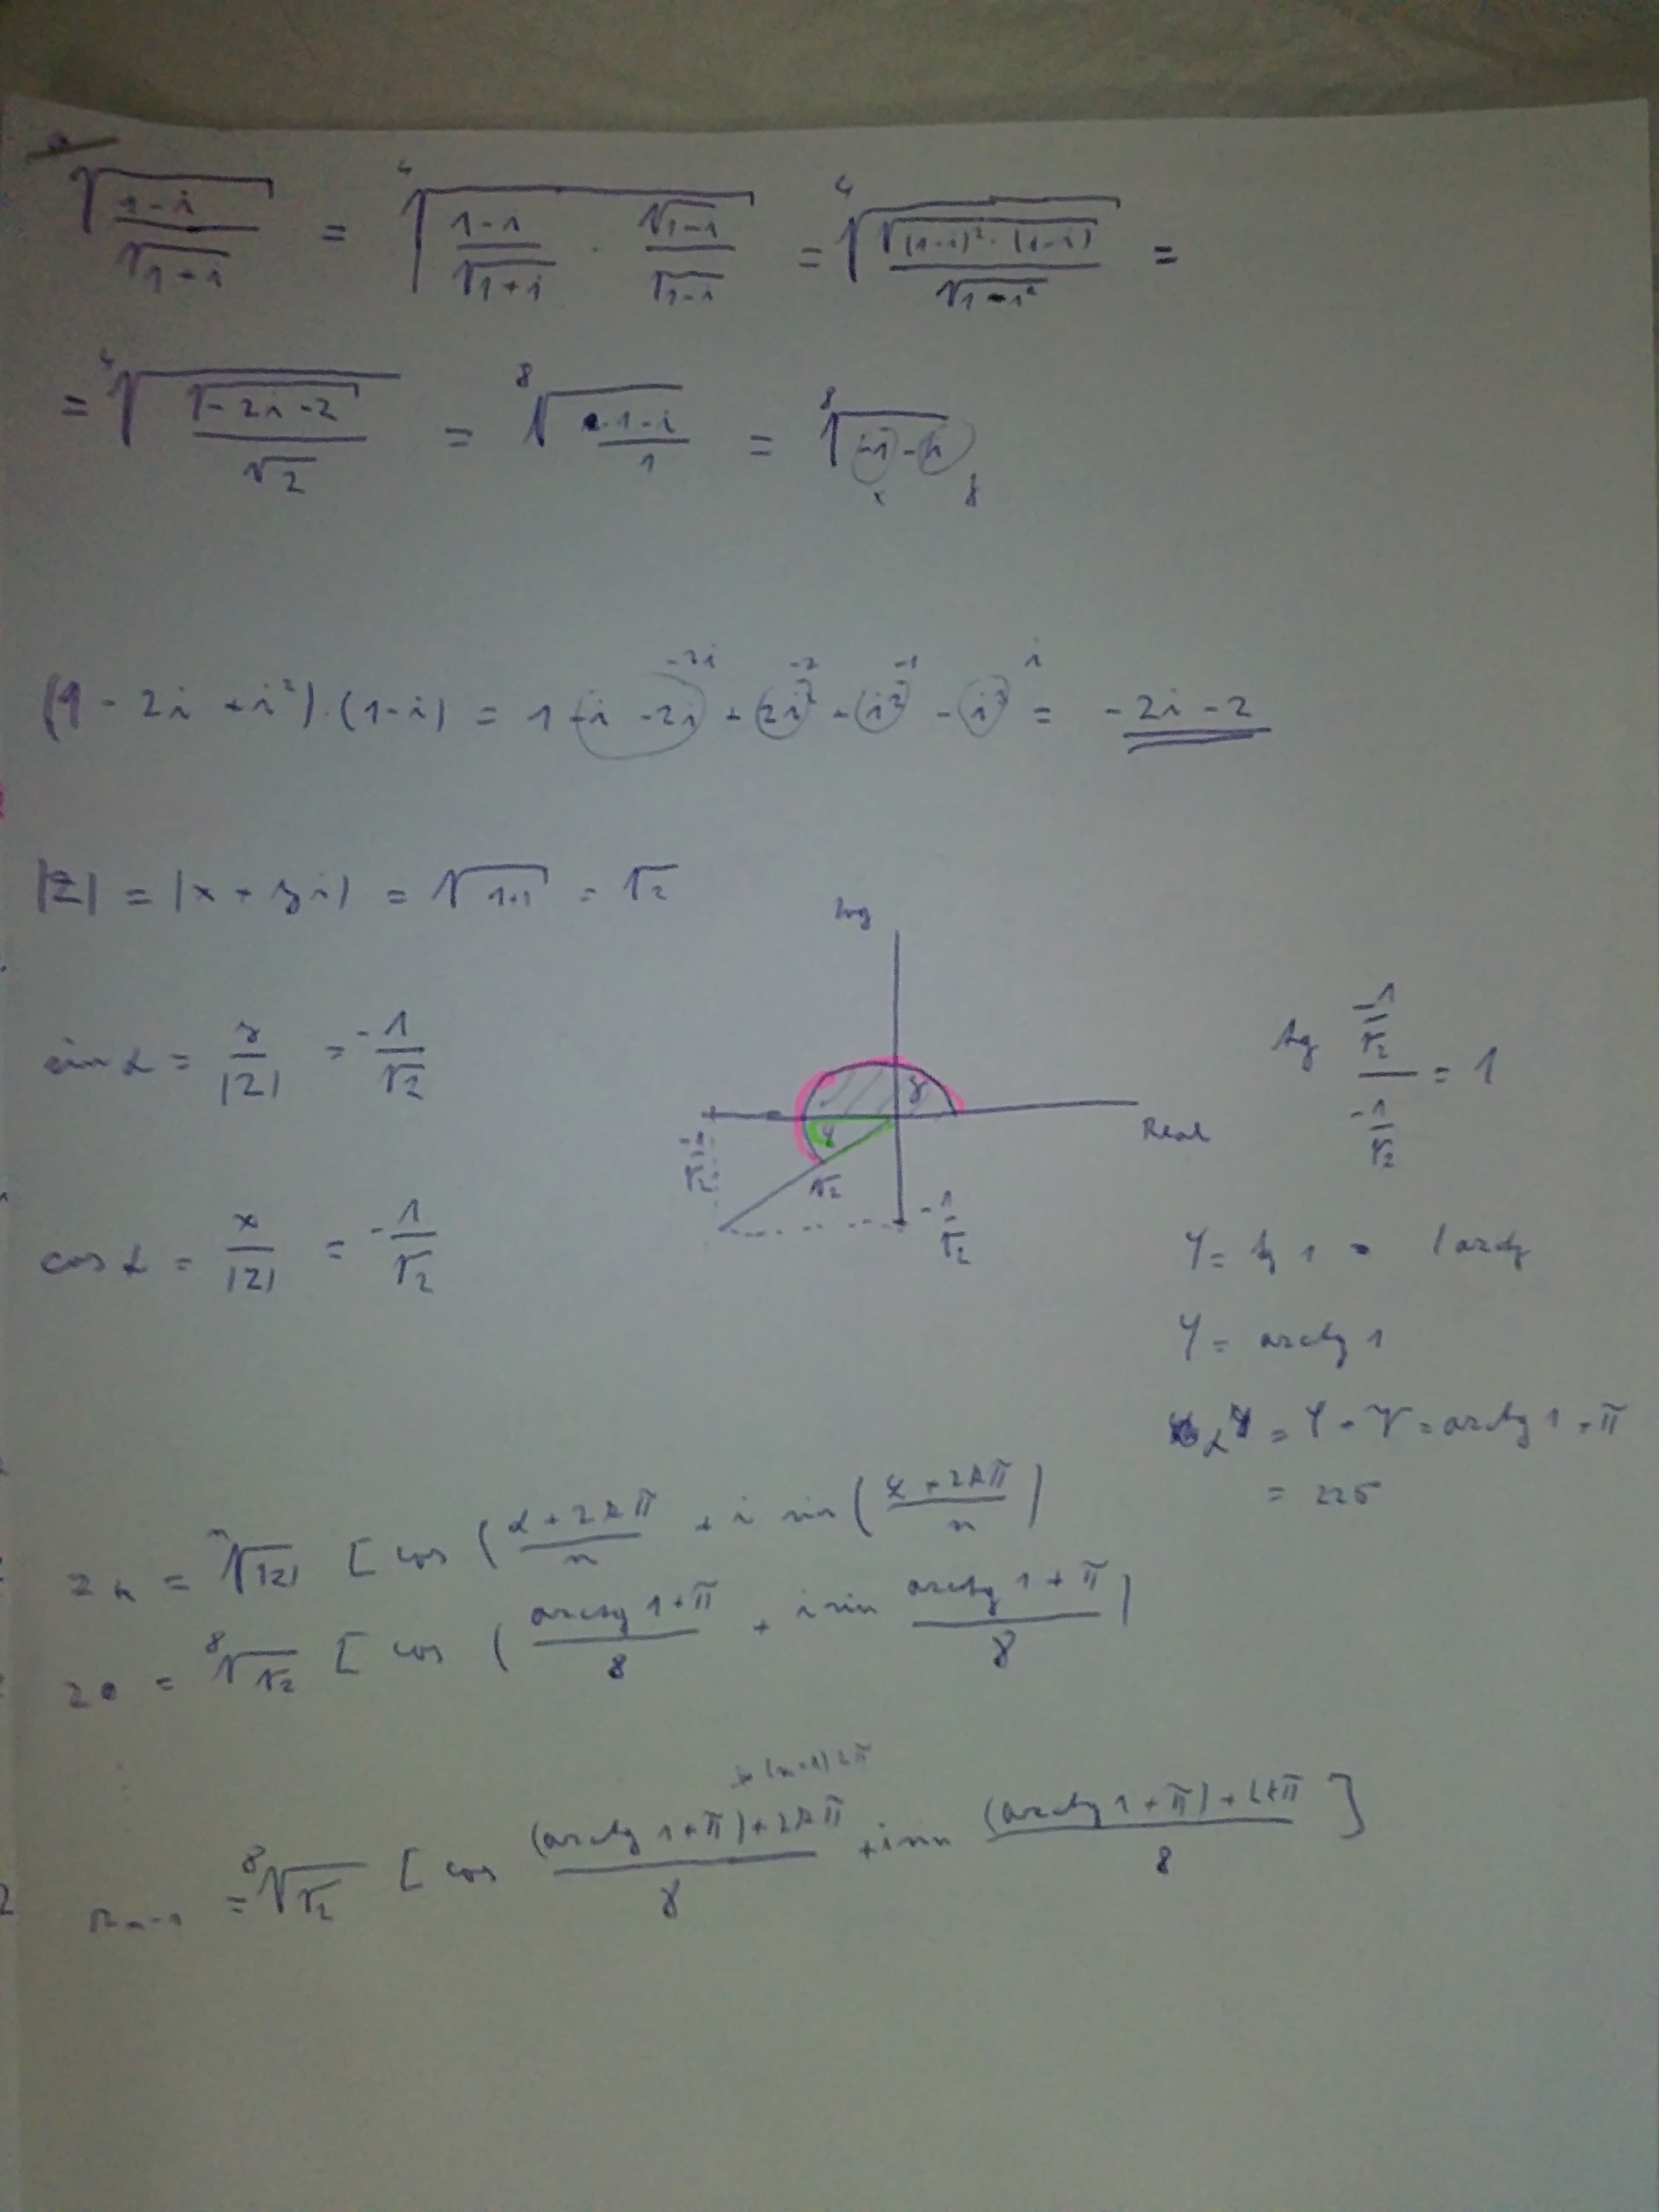 √((1-i)/√(1+i)) = ⁴√((1-i)/√(1+i) · √(1-i)/√(1-i)) = ⁴√(√((1-i)²·(1-i))/√(1-i²)) =
= ⁴√(√(-2i-2)/√2) = ⁸√((-1-i)/1) = ⁸√(-1-i)
x y
-2i -2 -1 i
(1-2i+i²)·(1-i) = 1-i-2i+2i²+i²-i³ = -2i-2
|z| = |x+yi| = √(1+1) = √2
Img
sin α = y/|z| = -1/√2
tg (-1/√2)/(-1/√2) = 1
γ
Real
-1/√2
√2
-1/√2
cos α = x/|z| = -1/√2
φ = tg 1 = 1 arctg
φ = arctg 1
α = φ + γ = arctg 1 + π
= 225
z k = ⁿ√|z| [cos (α+2kπ)/n + i sin (α+2kπ)/n)
z0 = ⁸√√2 [cos (arctg 1+π)/8 + i sin (arctg 1+π)/8)
(n-1)2π
z n-1 = ⁸√√2 [cos ((arctg 1+π)+2kπ)/8 + i sin ((arctg 1+π)+2kπ)/8]